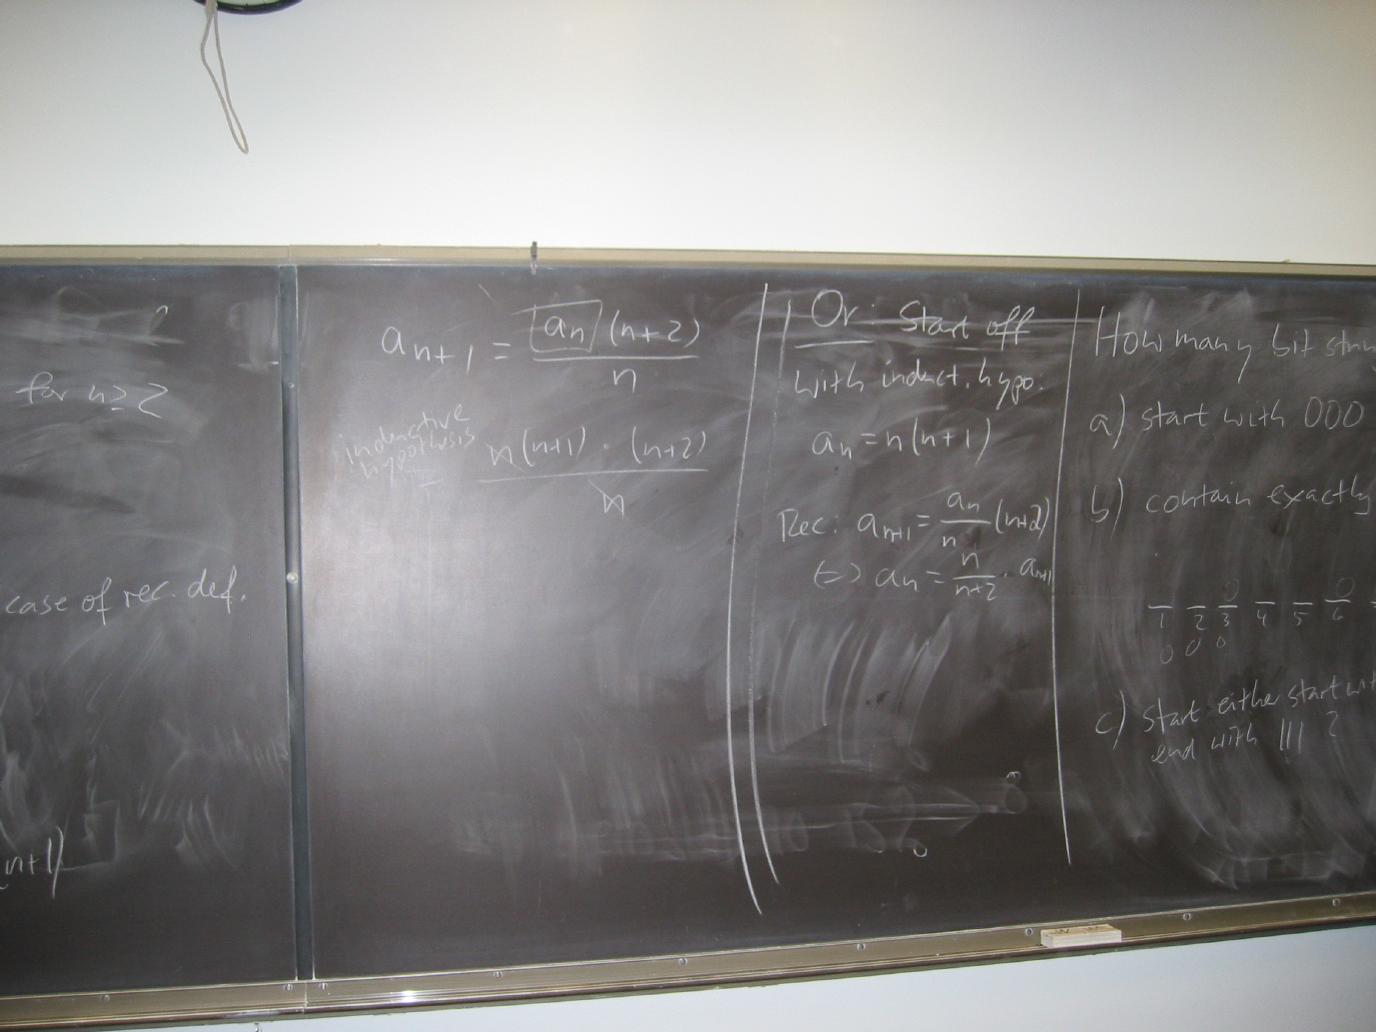 for n ≥ 2
case of rec. def.
(n+1)
a_{n+1} = a_n (n+2) / n
inductive hypothesis = n(n+1) · (n+2) / n
Or: Start off
with induct. hypo.
a_n = n(n+1)
Rec: a_{n+1} = a_n / n (n+2)
⇔ a_n = n / n+2 · a_{n+1}
How many bit
a) start with 000
b) contain exactly
0 0
1 2 3 4 5 6
0 0 0
c) start either start
end with 111 ?